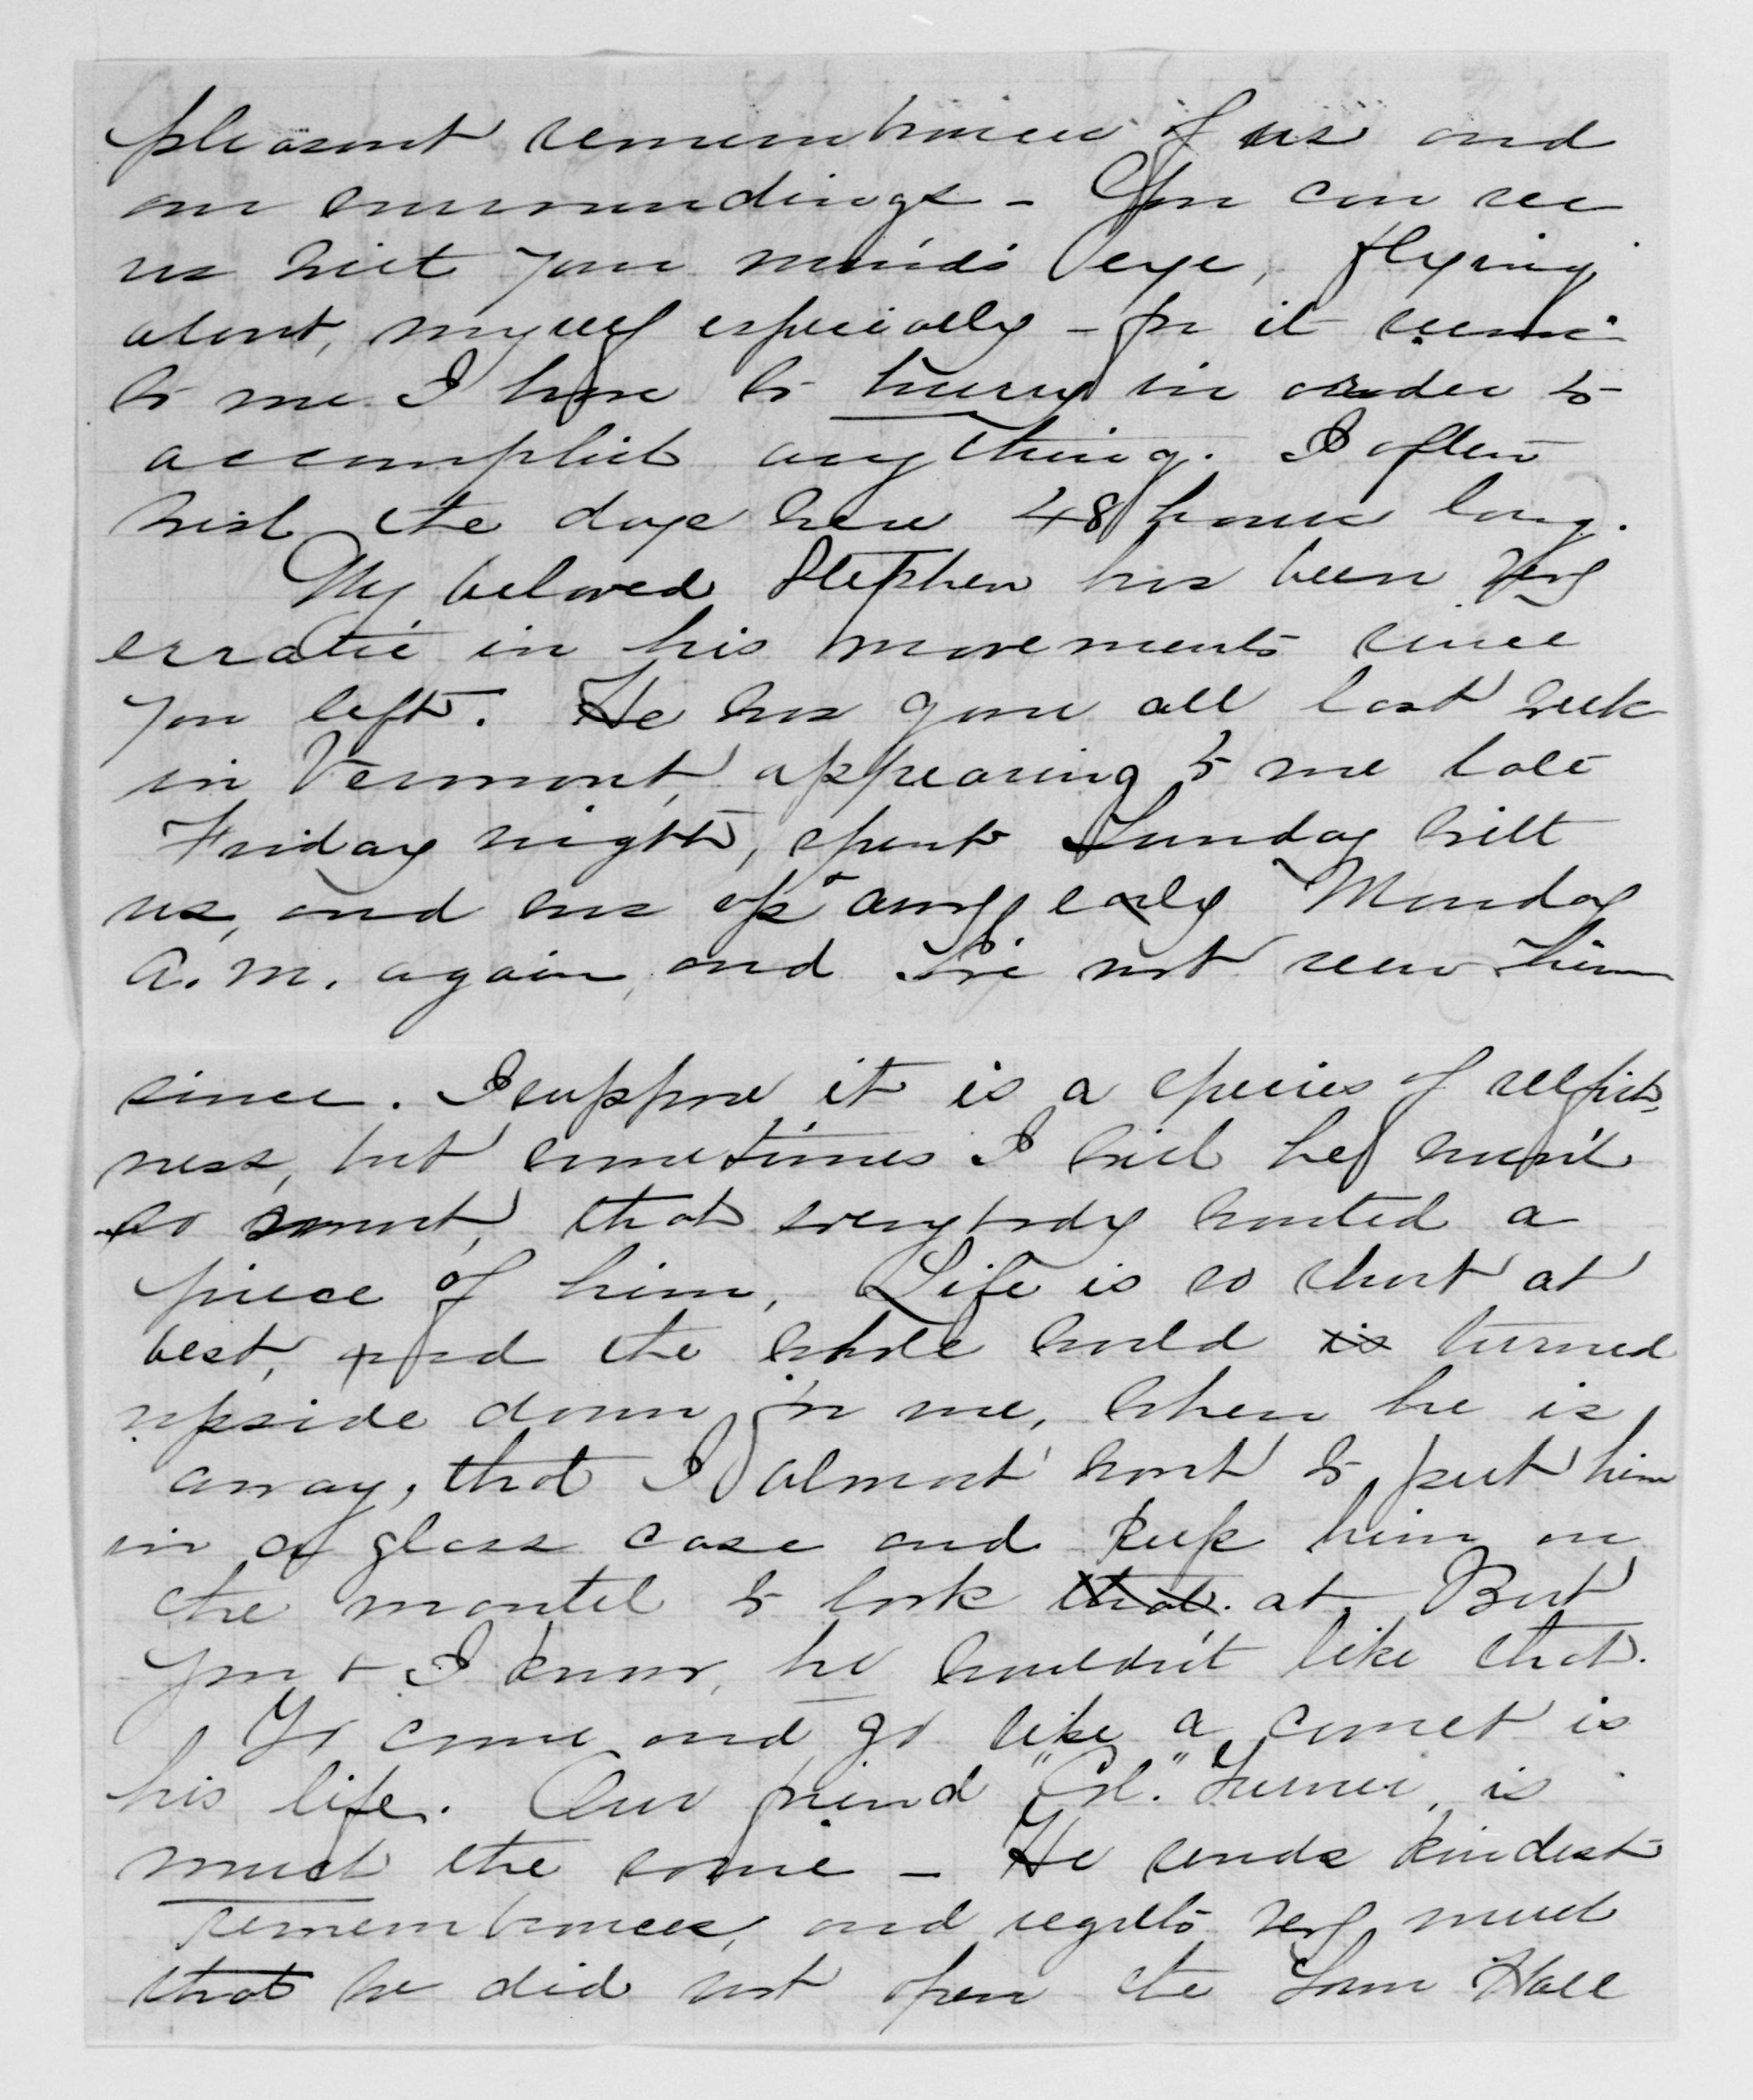 pleasant remembrance of us and
our surroundings - You can see
us with your mind's eye, flying
about, myself especially - for it seems
to me I have to hurry in order to
accomplish anything. I often
wish the days were 48 hours long.
My beloved Stephen has been very
erratic in his movements since
you left. He was gone all last week
in Vermont, appearing to me late
Friday night, spent Sunday with
us, and was off away early Monday
A.M. again, and I've not seen him
since. I suppose it is a species of selfish-
ness, but sometimes I wish he wasn't
so smart, that everybody wanted a
piece of him, Life is so short at
best, and the whole world is turned
upside down for me, when he is
away, that I almost want to put him
in a glass case and keep him on
the mantel to look that at. But
you + I know, he wouldn't like that.
To come and go like a comet is
his life. Our friend "Col." Turner, is
much the same - He sends kindest
remembrances, and regrets very much
that he did not open the Town Hall